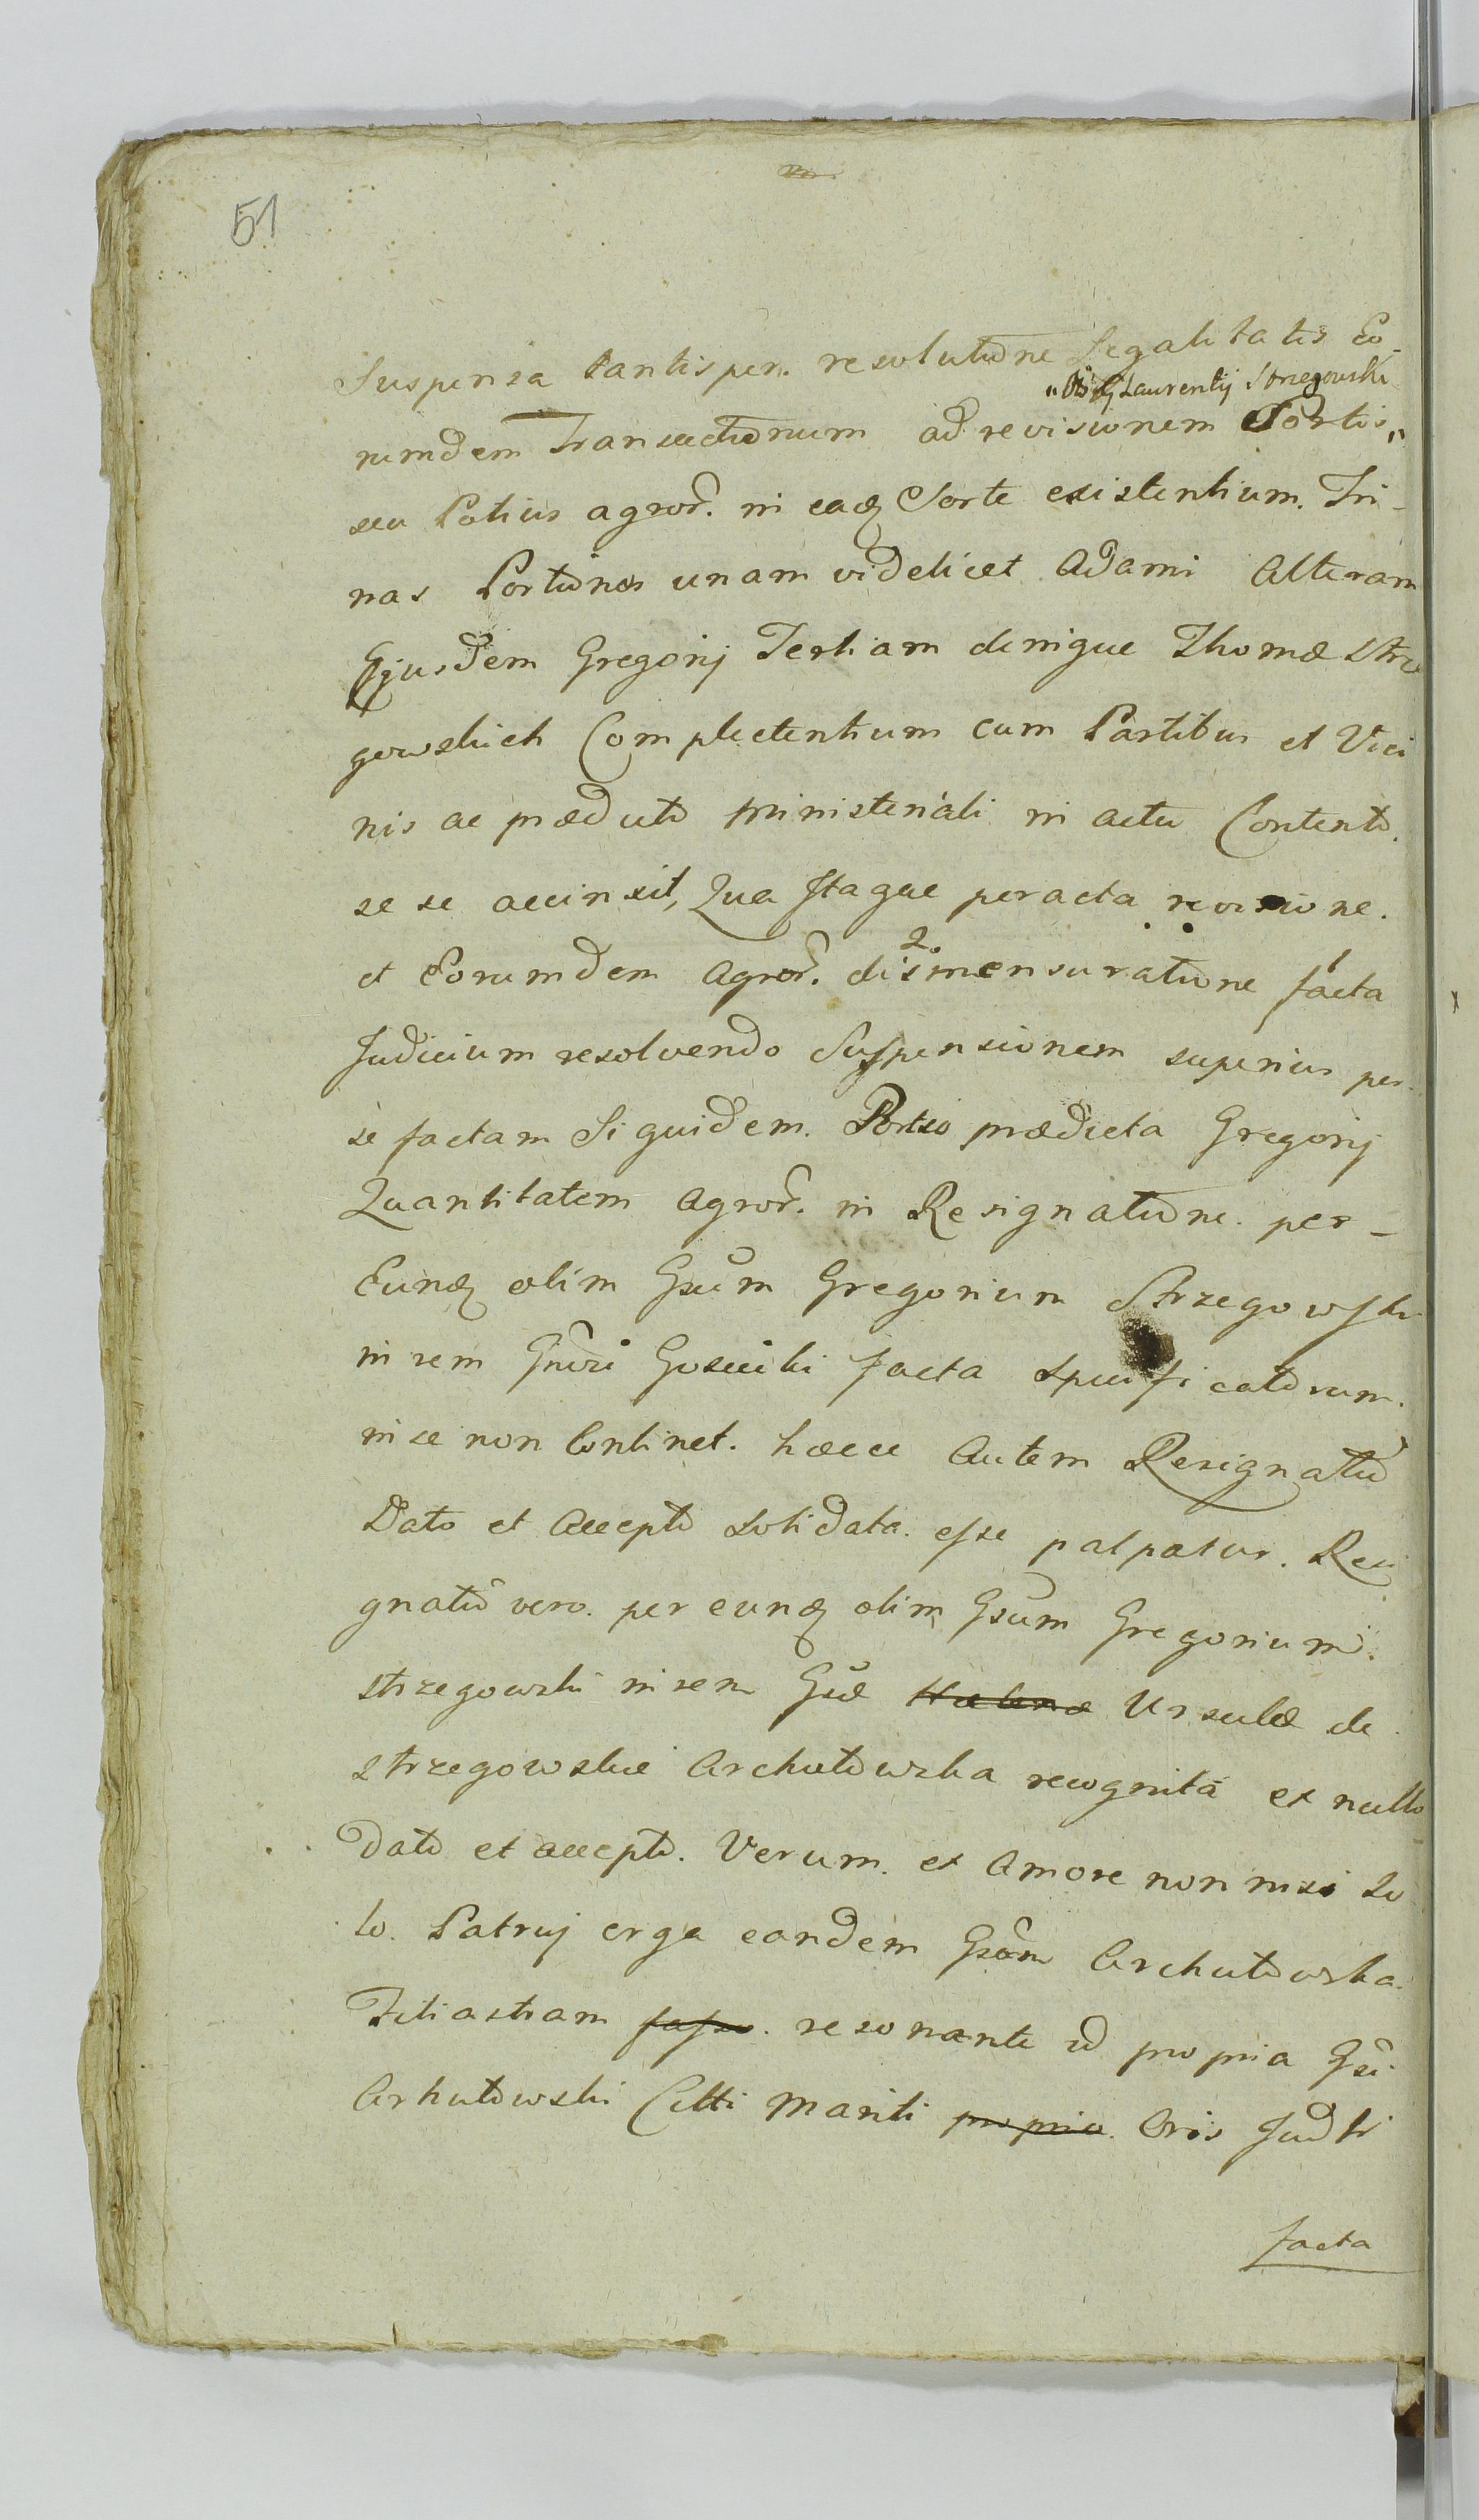 51
Suspensa tantisper. resolutione Legalitatis Eo-
"Olĩ Gĩ Laurentij Strzegowski
rumdem Transactionum ad revisionem Sortis"
seu Potius agroř. in eadꝫ Sorte existentium. Tri-
nas Portiones unam videlicet Adami Alteram
Ejusdem Gregorij Tertiam denique Thomæ Strze
gowskich Complectentium cum Partibus et Vici
nis ac præducto ministeriali in actu Contento.
se se accinxit, Qua Itaque peracta revisione.
et Eorumdem Agroř. dismensuratione facta
2. 1
Judicium resolvendo Suspensionem superius per
se factam Siquidem. Portio prædicta Gregorij
Quantitatem Agroř. in Resignatione. per-
Eundꝫ olim Gsũm Gregorium Strzegowski
in rem Gñrsi Gosciki facta specificatorum.
in se non Continet. hæcce Autem Resignatio
Dato et Accepto solidata. esse palpatur. Resi
gnatio vero. per eundꝫ olim Gsũm Gregorium.
Strzegowski in rem Gsæ Helenæ Ursulæ de
Strzegowskie Archutowska recognita ex nullo
Dato et accepto. Verum. ex Amore non nisi So
lo. Patruj erga eandem Gsãm Archutowska.
Filiastram resonante ad propria Gsĩ
Arhutowski Citti Mariti propria. Oris Judłi
facta